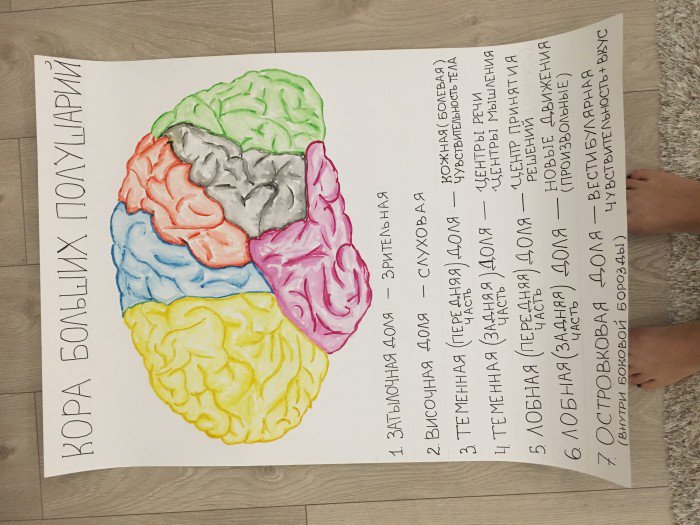 КОРА БОЛЬШИХ ПОЛУШАРИЙ
1. ЗАТЫЛОЧНАЯ ДОЛЯ – ЗРИТЕЛЬНАЯ
2. ВИСОЧНАЯ ДОЛЯ – СЛУХОВАЯ
3 ТЕМЕННАЯ (ПЕРЕДНЯЯ) ДОЛЯ – КОЖНАЯ (БОЛЕВАЯ)
ЧАСТЬ ЧУВСТВИТЕЛЬНОСТЬ ТЕЛА
4 ТЕМЕННАЯ (ЗАДНЯЯ) ДОЛЯ – ЦЕНТРЫ РЕЧИ
ЧАСТЬ ЦЕНТРЫ МЫШЛЕНИЯ
5 ЛОБНАЯ (ПЕРЕДНЯЯ) ДОЛЯ – ЦЕНТР ПРИНЯТИЯ
ЧАСТЬ РЕШЕНИЙ
6 ЛОБНАЯ (ЗАДНЯЯ) ДОЛЯ – НОВЫЕ ДВИЖЕНИЯ
ЧАСТЬ (ПРОИЗВОЛЬНЫЕ)
7. ОСТРОВКОВАЯ ДОЛЯ – ВЕСТИБУЛЯРНАЯ
(ВНУТРИ БОКОВОЙ БОРОЗДЫ) ЧУВСТВИТЕЛЬНОСТЬ + ВКУС